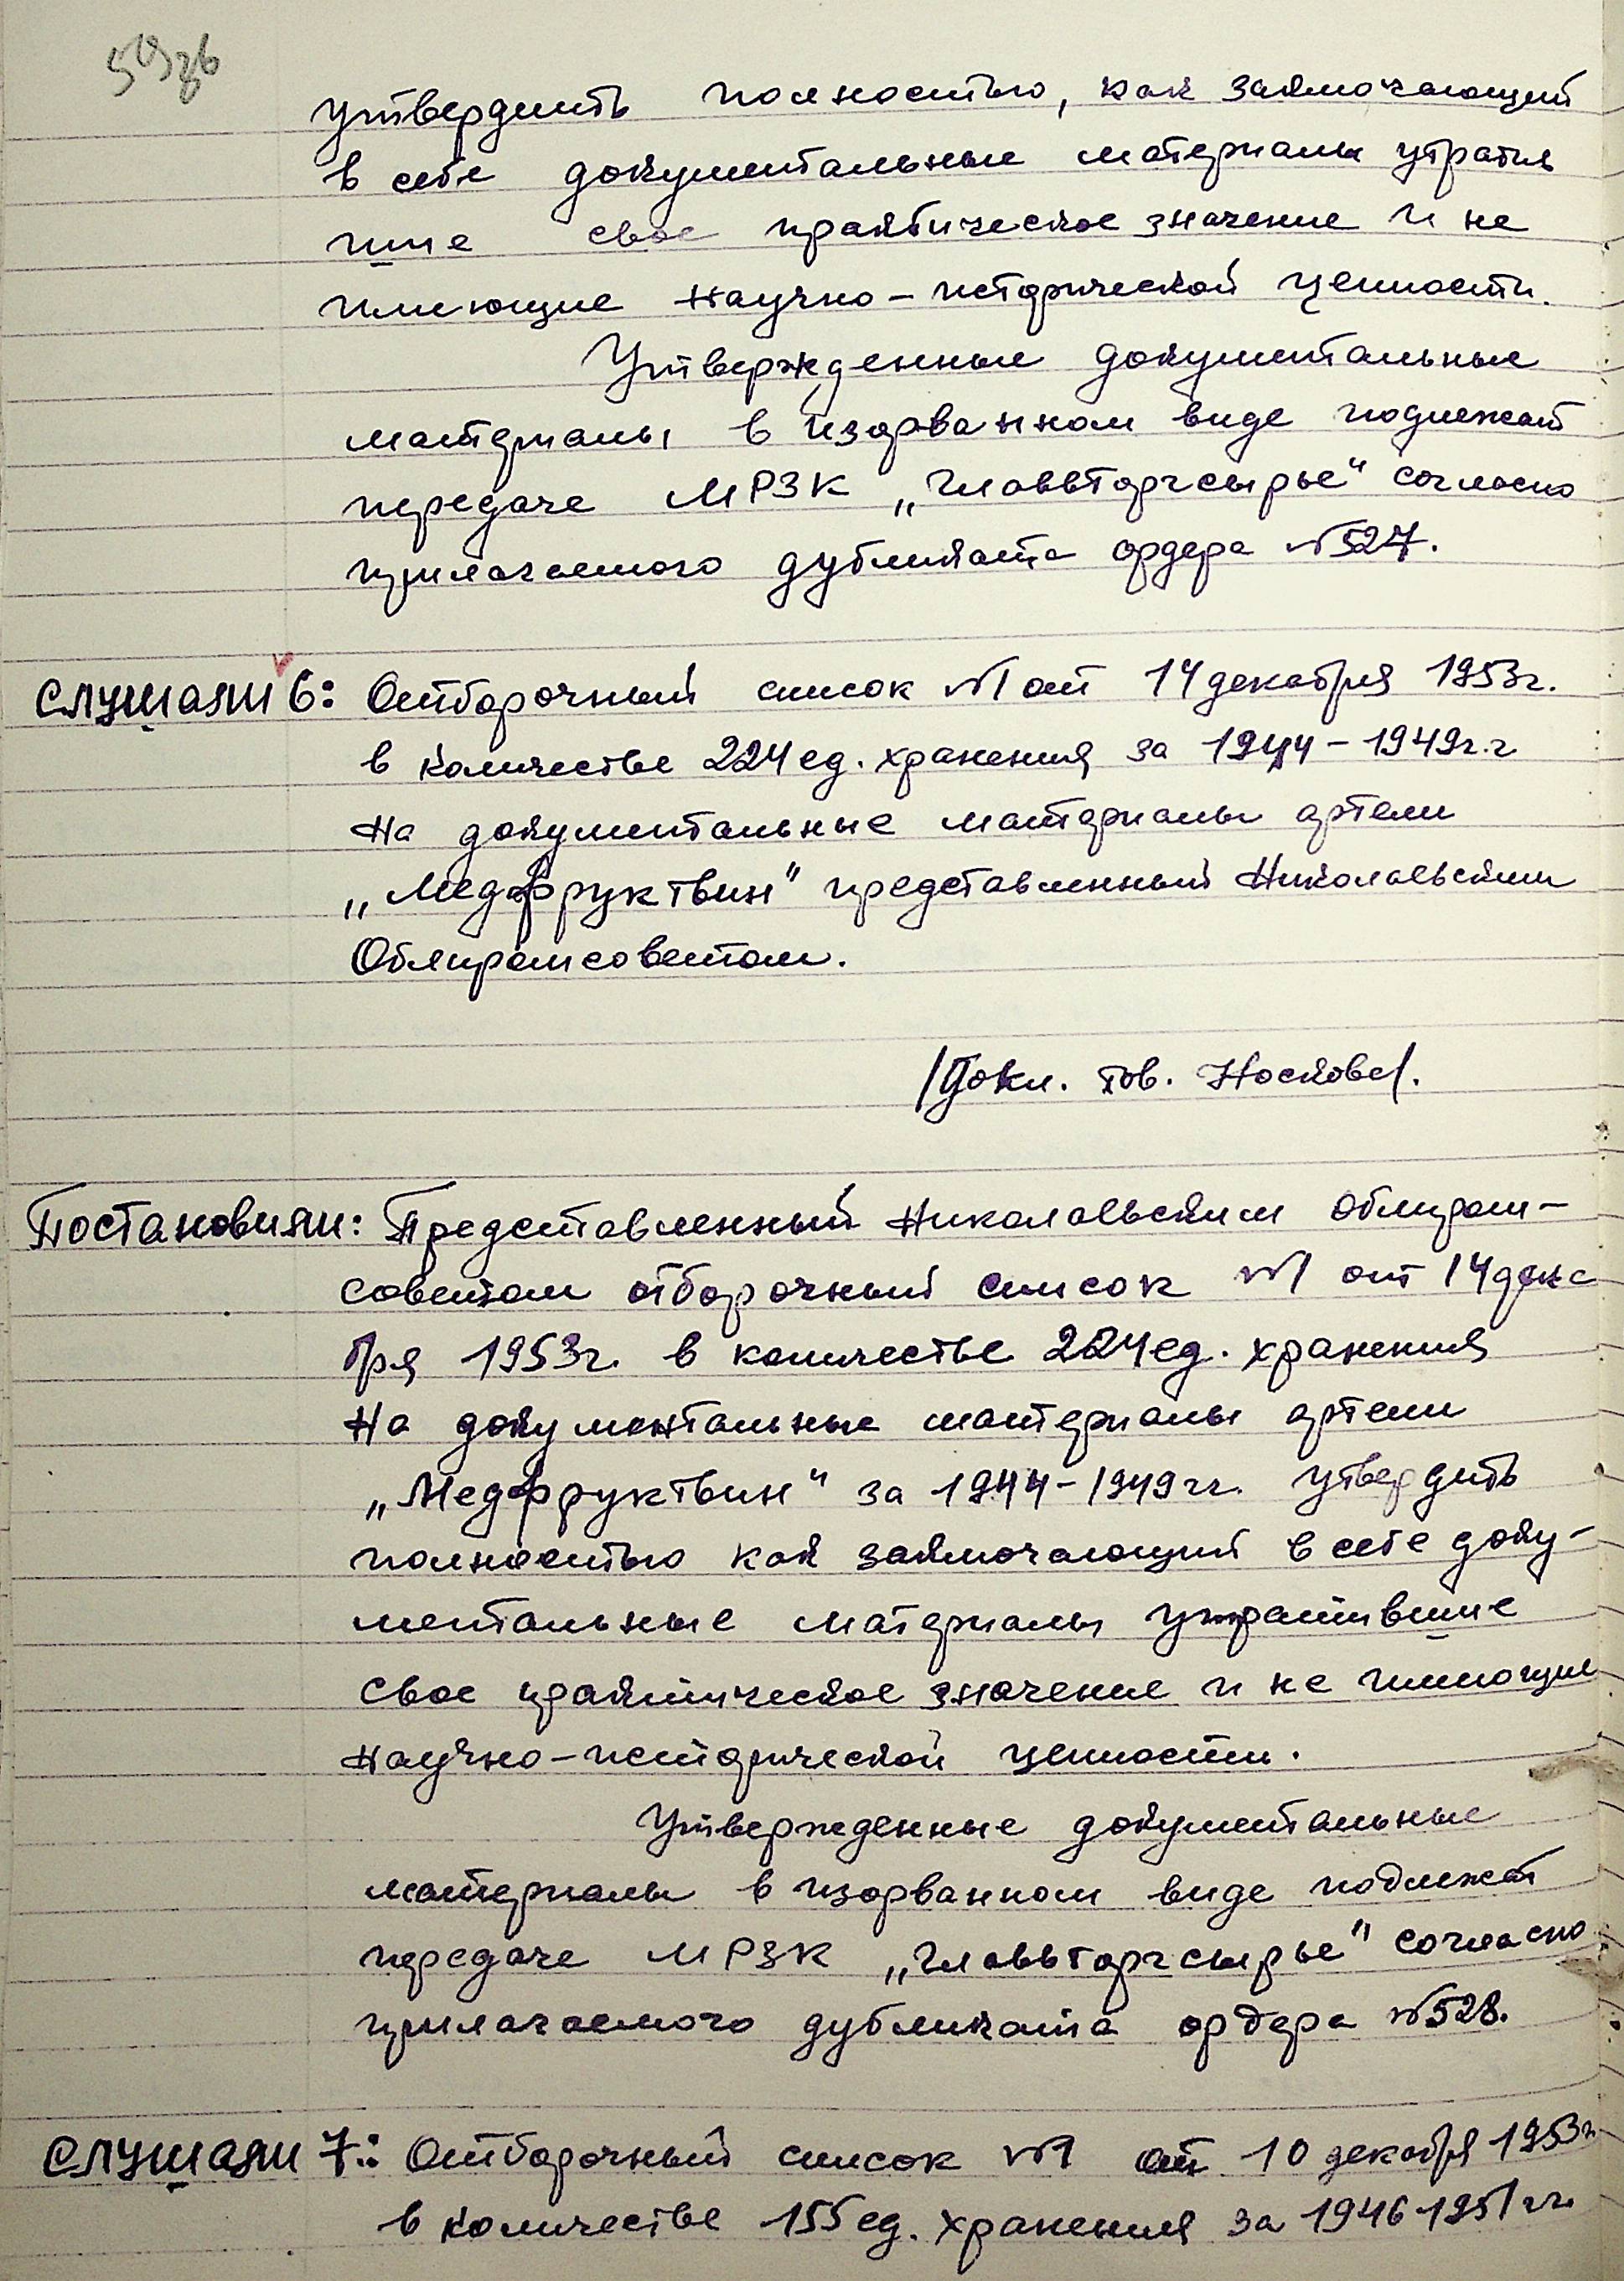 утвердить полностью, как заключающий
в себе документальные материалы утратив
шие свое практическое значение и не
имеющие научно-исторической ценности.
Утвержденные документальные
материалы в изорванном виде подлежат
передаче МРЗК „Главвторчсырье" согласно
прилагаемого дубликата ордера №527.
Слушали 6: Отборочный список №1 от 14 декабря 1953г.
в количестве 224 ед. хранения за 1944-1949г.г
на документальные материалы артели
„Медфруктвин" представленный Николаевским
Облпромсоветом.
/Докл. тов. Носкова/.
Постановили: Представленный Николаевским облпром-
советом отборочный список №1 от 14 дека
бря 1953г. в количестве 224 ед. хранения
на документальные материалы артели
„Медфруктвин" за 1944-1949гг. утвердить
полностью как заключающий в себе доку-
ментальные материалы утратившие
свое практическое значение и не имеющие
научно-исторической ценности.
Утвержденные документальные
материалы в изорванном виде подлежат
передаче МРЗК „Главвторчсырье" согласно
прилагаемого дубликата ордера №528.
Слушали 7: Отборочный список №1 от 10 декабря 1953г.
в количестве 155 ед. хранения за 1946-1951гг.